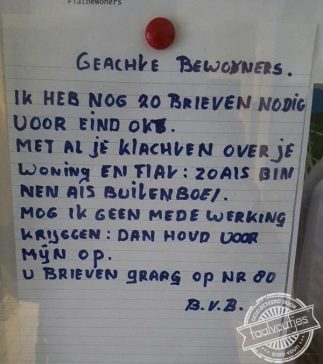 Flatbewoners
GEACHTE BEWONNERS.
IK HEB NOG 20 BRIEVEN NODIG
VOOR EIND OKT.
MET AL JE KLACHTEN OVER JE
WONING EN FLAT: ZOALS BIN
NEN ALS BUITENBOEL.
MOG IK GEEN MEDE WERKING
KRIJGGEN: DAN HOUD VOOR
MIJN OP.
U BRIEVEN GRAAG OP NR 80
B.V.B.
taalvoutjes
GOED FOUT!